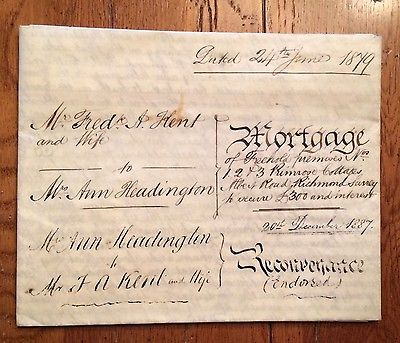 Dated 24th June 1879
Mr. Fredk. A. Kent
and Wife
to
Mrs. Ann Headington
Mortgage
of Freehold premises Nos
1 2 & 3 Primrose Cottages
Road Richmond Surrey
to secure £300 and interest
20th December 1887.
Mrs Ann Headington
to
Mr F A Kent and Wife
Reconveyance
(Endorsed)